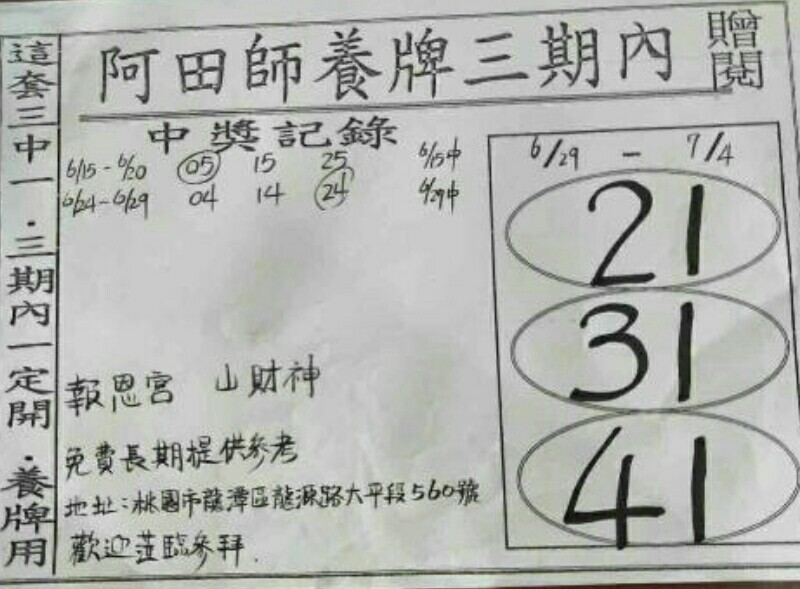 阿田師養牌三期內
贈閱
這套三中一．三期內一定開．養牌用
中獎記錄
6/15-6/20 05 15 25 6/15中
6/24-6/29 04 14 24 6/29中
6/29 - 7/4
21
31
41
報恩宮 山財神
免費長期提供參考
地址:桃園市龍潭區龍源路大平段560號
歡迎蒞臨參拜.